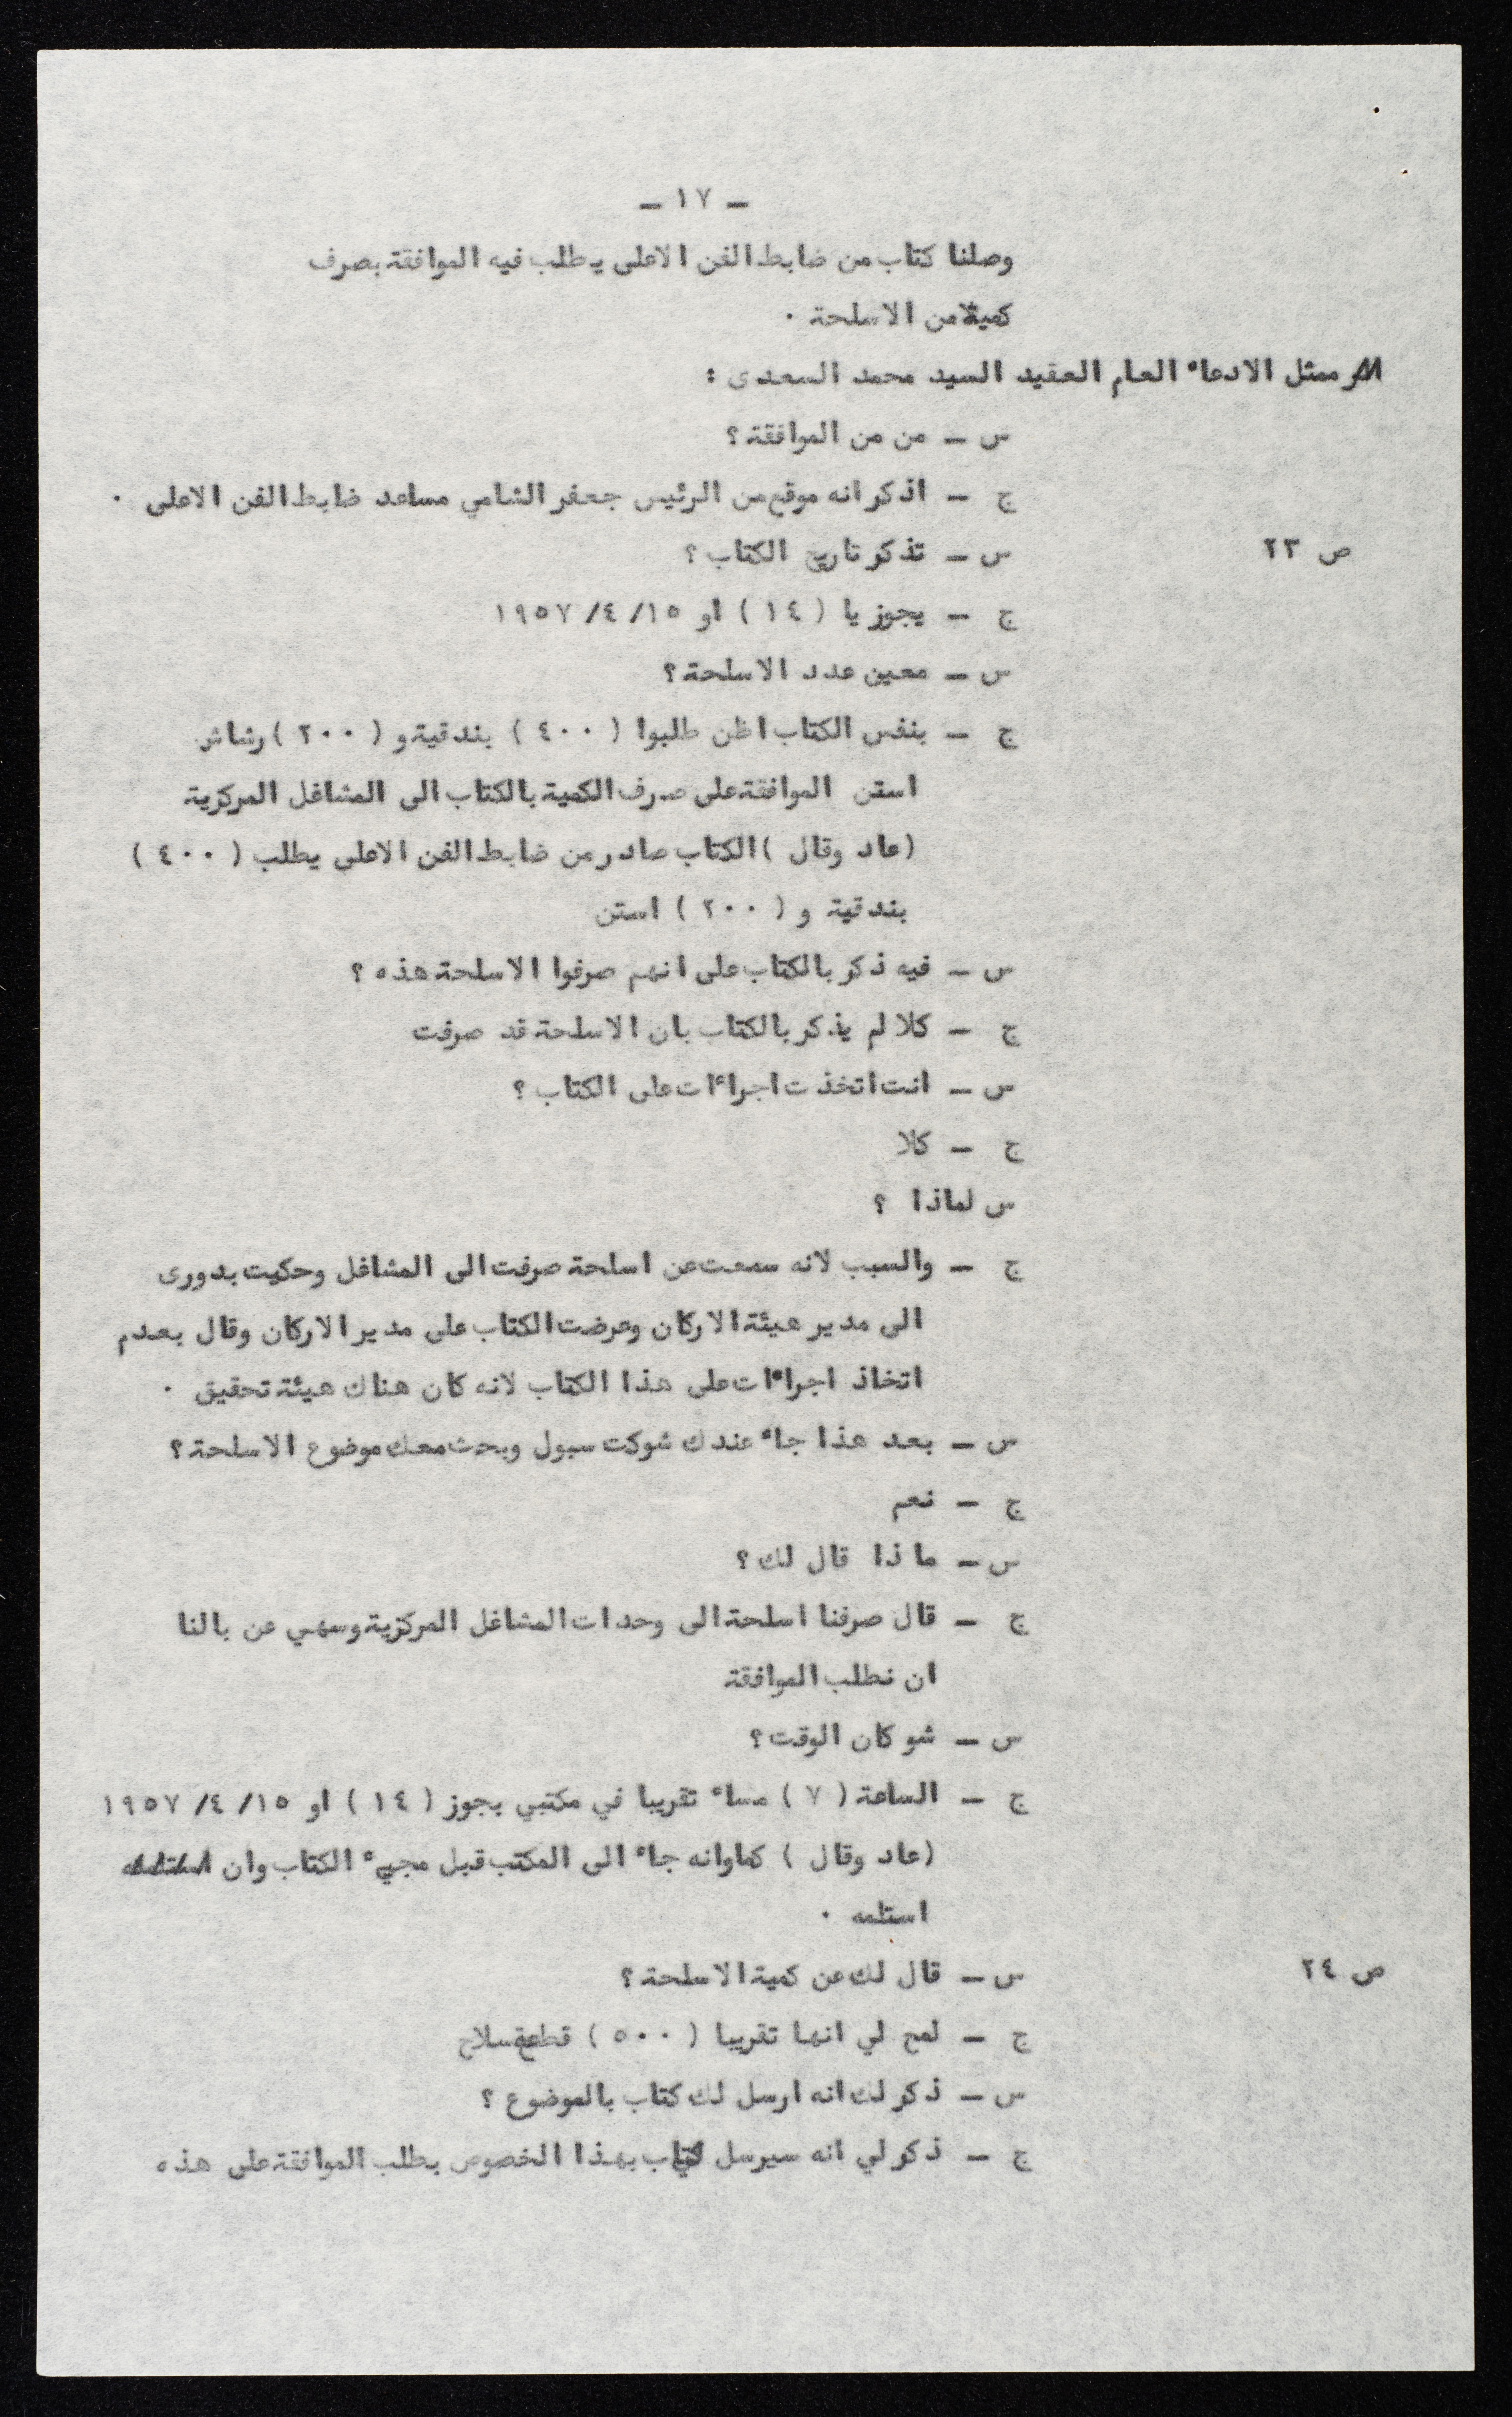 ـ ١٧ ـ
وصلنا كتاب من ضابط الفن الاعلى يطلب فيه الموافقة بصرف
كمية من الاسلحة .
ممثل الادعاء العام العقيد السيد محمد السعدى :
س ـ من من الموافقة ؟
ج ـ اذكر انه موقع من الرئيس جعفر الشامي مساعد ضابط الفن الاعلى .
ص ٢٣ س ـ تذكر تاريخ الكتاب ؟
ج ـ يجوز يا ( ١٤ ) او ١٥/ ٤/ ١٩٥٧
س ـ معين عدد الاسلحة ؟
ج ـ بنفس الكتاب اظن طلبوا ( ٤٠٠ ) بندقية و ( ٢٠٠ ) رشاش
استن الموافقة على صرف الكمية بالكتاب الى المشاغل المركزية
(عاد وقال ) الكتاب صادر من ضابط الفن الاعلى يطلب ( ٤٠٠ )
بندقية و ( ٢٠٠ ) استن
س ـ فيه ذكر بالكتاب على انهم صرفوا الاسلحة هذه ؟
ج ـ كلا لم يذكر بالكتاب بان الاسلحة قد صرفت
س ـ انت اتخذت اجراءات على الكتاب ؟
ج ـ كلا
س لماذا ؟
ج ـ والسبب لانه سمعت عن اسلحة صرفت الى المشاغل وحكيت بدورى
الى مدير هيئة الاركان وعرضت الكتاب على مدير الاركان وقال بعدم
اتخاذ اجراءات على هذا الكتاب لانه كان هناك هيئة تحقيق .
س ـ بعد هذا جاء عندك شوكت سبول وبحث معك موضوع الاسلحة ؟
ج ـ نعم
س ـ ماذا قال لك ؟
ج ـ قال صرفنا اسلحة الى وحدات المشاغل المركزية وسهي عن بالنا
ان نطلب الموافقة
س ـ شو كان الوقت ؟
ج ـ الساعة ( ٧ ) مساء تقريبا في مكتبي يجوز ( ١٤ ) او ١٥/ ٤/ ١٩٥٧
(عاد وقال ) كماوانه جاء الى المكتب قبل مجيء الكتاب وان
استلمه .
ص ٢٤ س ـ قال لك عن كمية الاسلحة ؟
ج ـ لمح لي انها تقريبا ( ٥٠٠ ) قطعة سلاح
س ـ ذكر لك انه ارسل لك كتاب بالموضوع ؟
ج ـ ذكر لي انه سيرسل كتاب بهذا الخصوص يطلب الموافقة على هذه